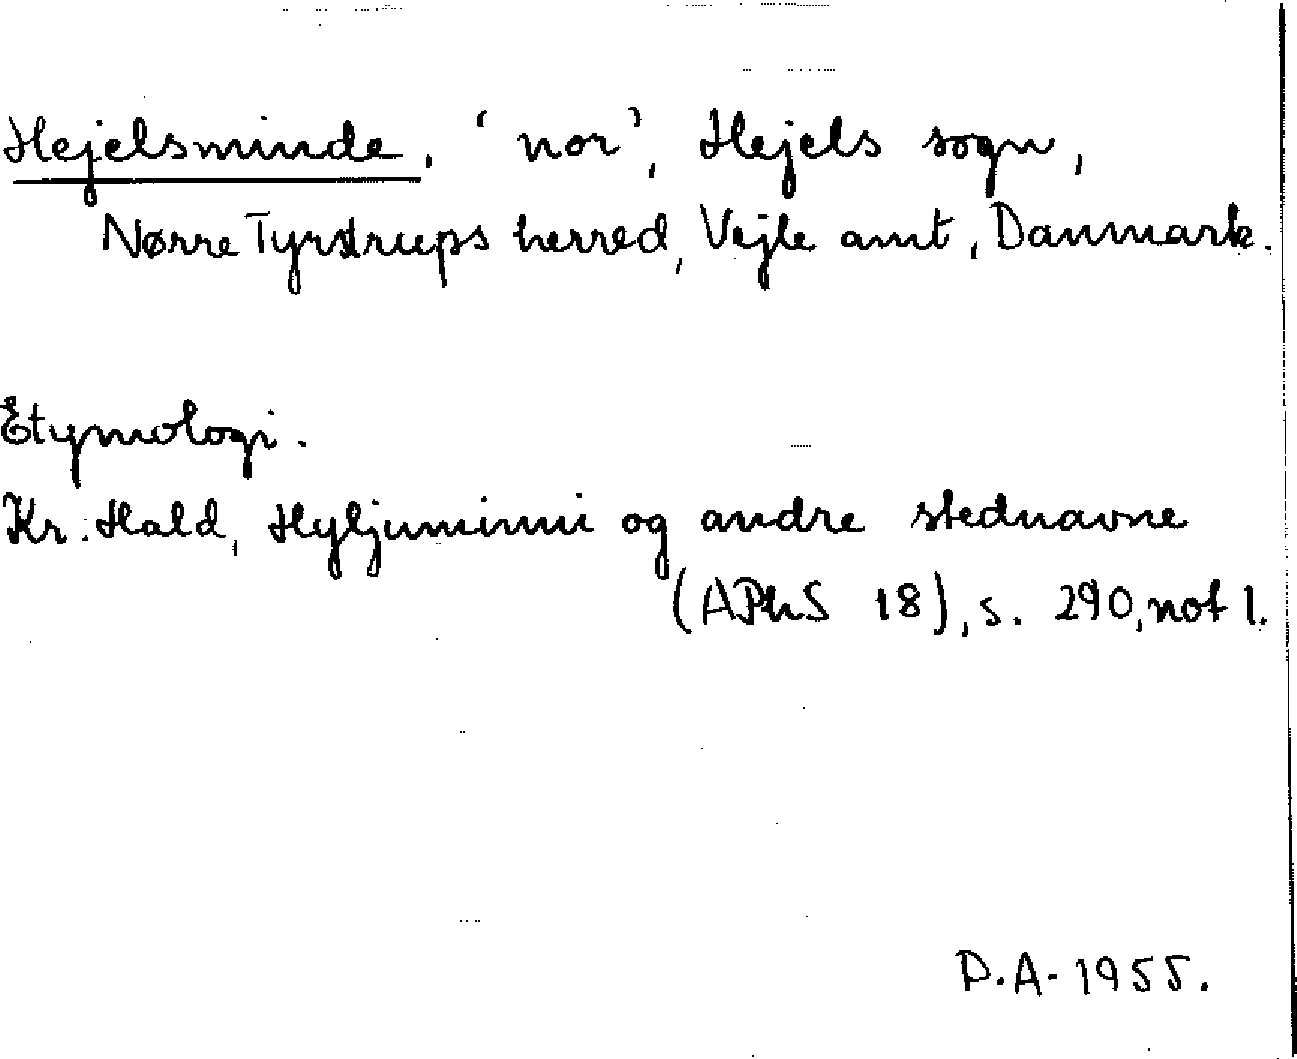 Hejelsminde, 'nor', Hejels sogn,
Nørre Tyrstrups herred, Vejle amt, Danmark.
Etymologi.
Kr. Hald, Hyljuminni og andre stednavne
(APhS 18), s. 290, not 1.
D.A. 1955.